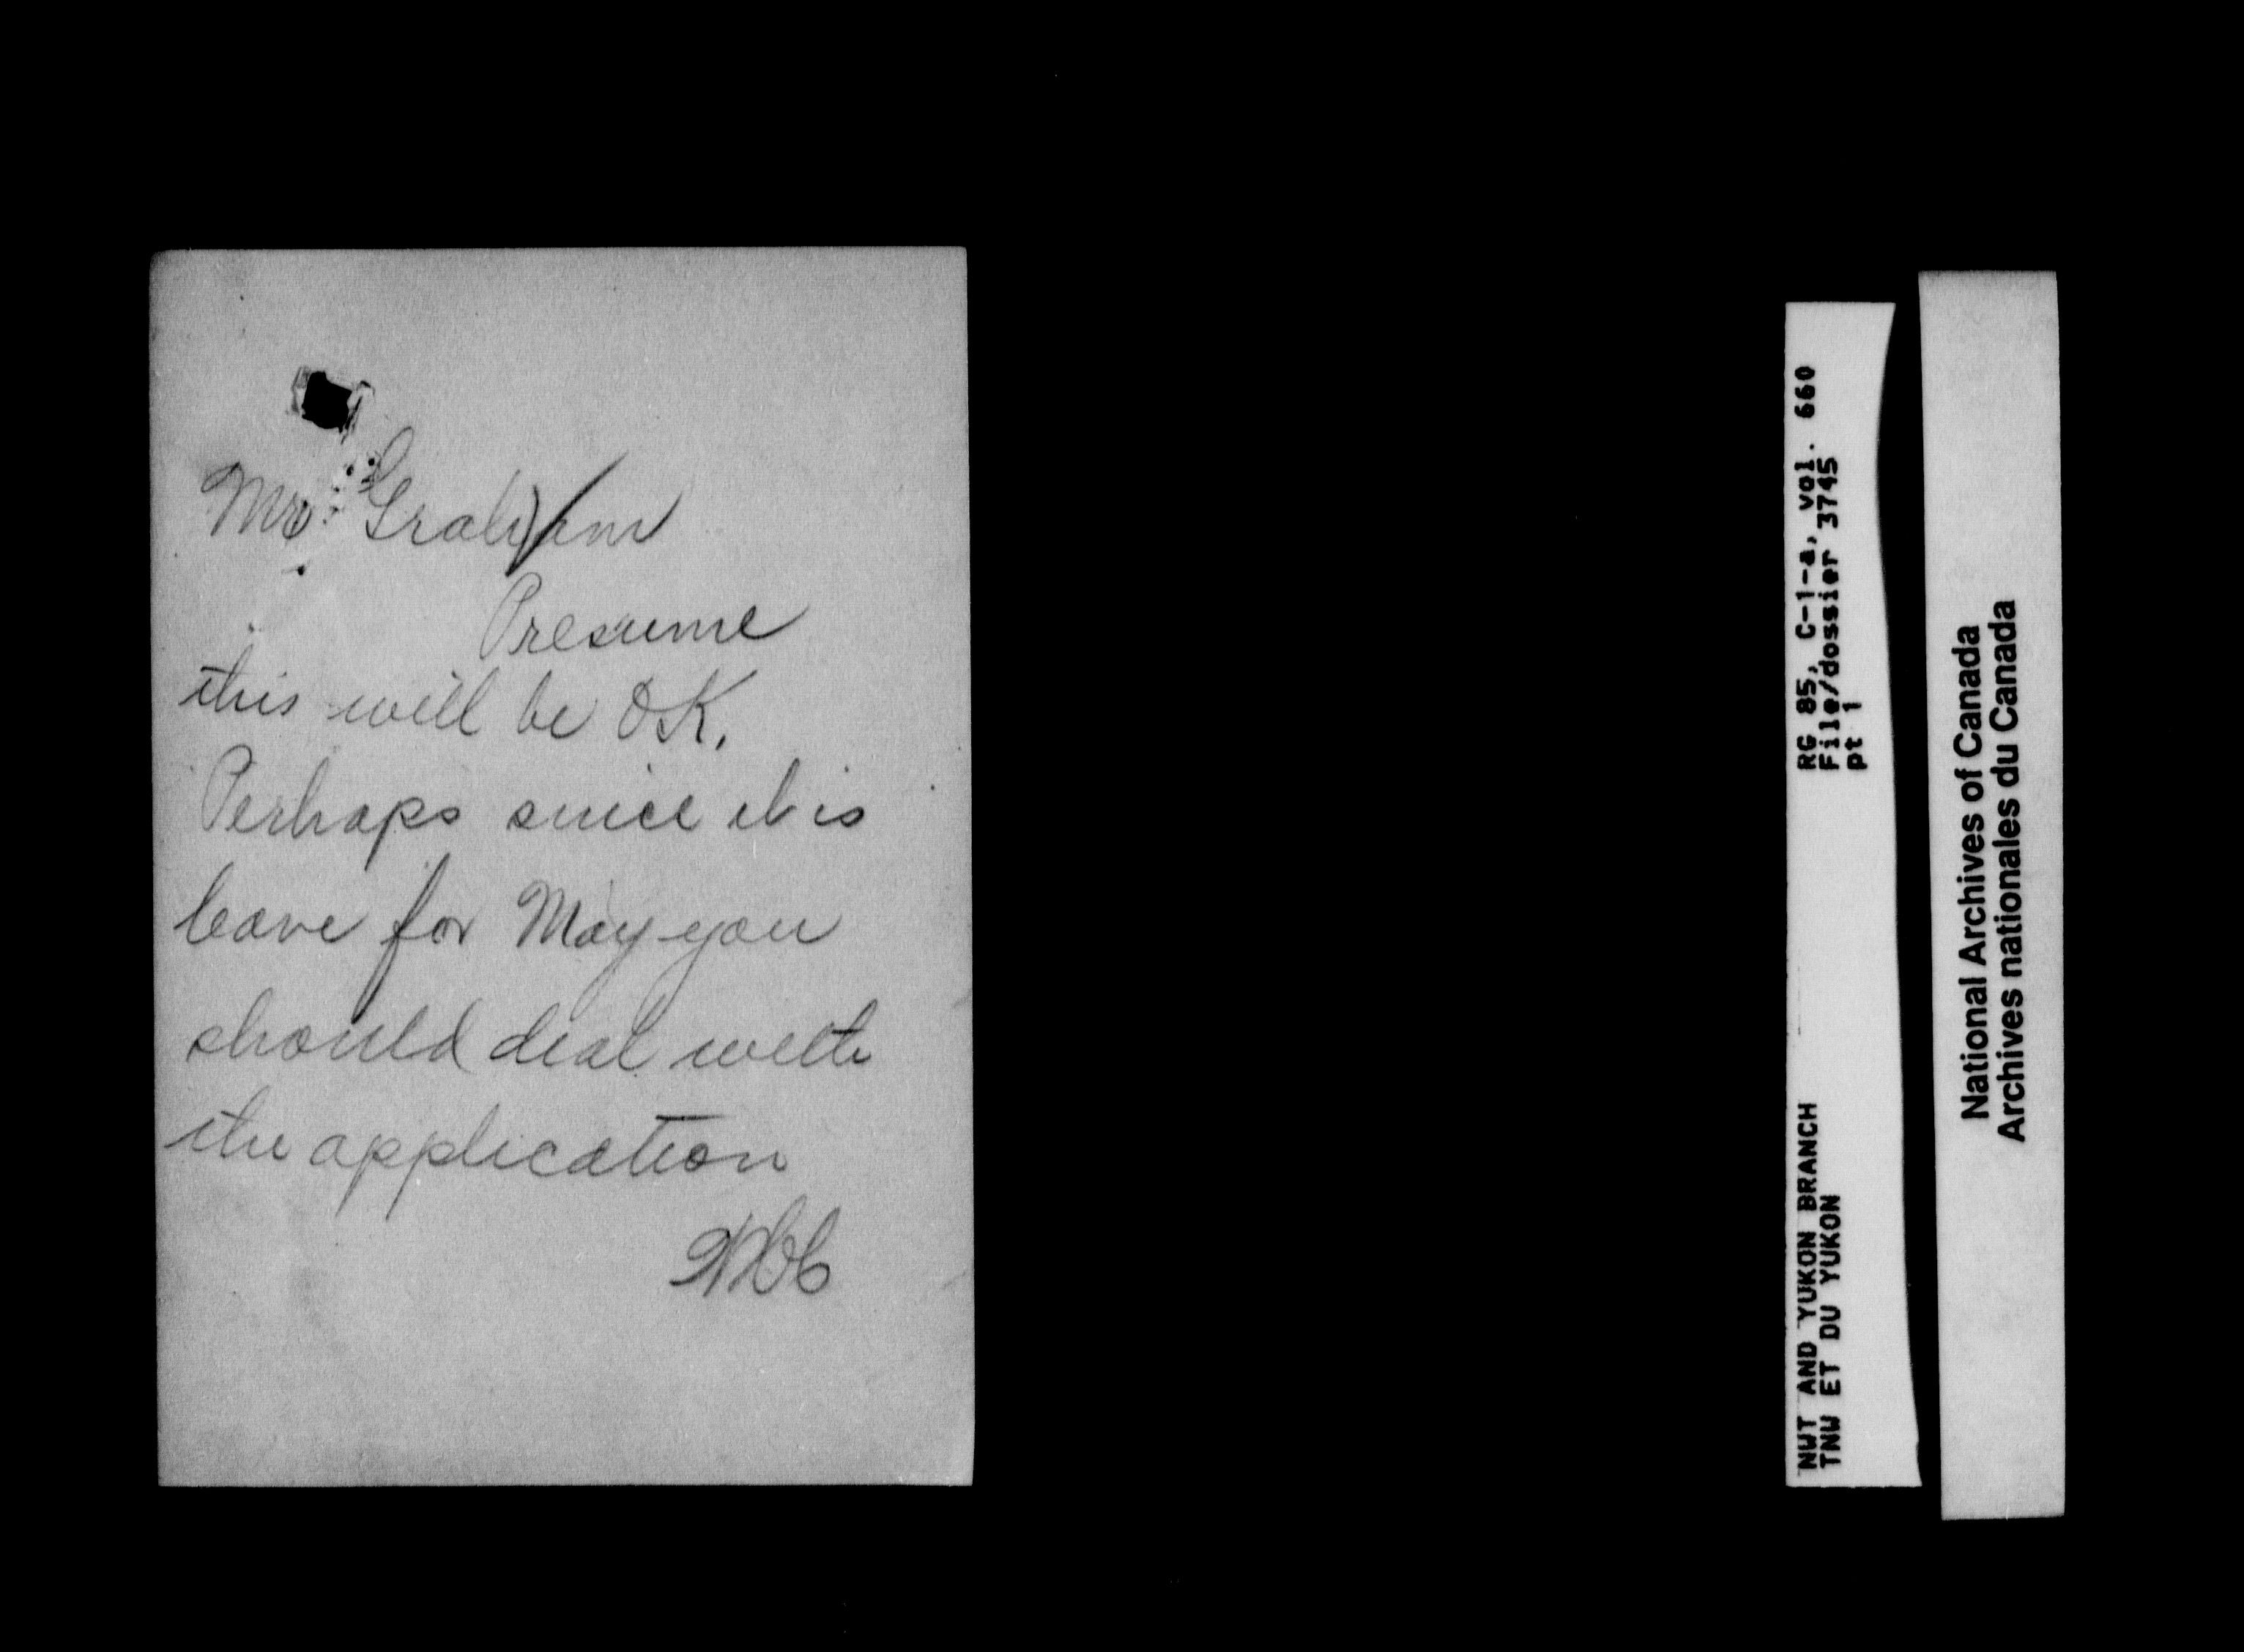 Mr. Graham
Presume
this will be OK.
Perhaps since it is
leave for May you
should deal with
the application
RG 85, C-1-a, vol. 660
File/dossier 3745
pt 1
NWT AND YUKON BRANCH
TNW ET DU YUKON
National Archives of Canada
Archives nationales du Canada